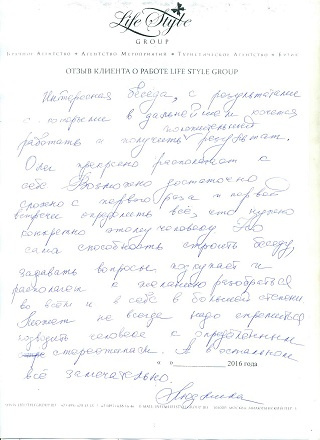 Life Style
GROUP
Брачное Агентство • Агентство Мероприятий • Туристическое Агентство •
ОТЗЫВ КЛИЕНТА О РАБОТЕ LIFE STYLE GROUP
Интересная беседа, с результатами
с которыми в дальнейшем хочется
положительный
работать и получить результат.
прекрасно располагает к
себе. Возможно достаточно
сложно с первого раза и первой
встречи определить всё, что нужно
конкретно этому человеку. Но
сама способность строить беседу,
задавать вопросы подкупает и
располагает к желанию разобраться
во всём и в себе в большей степени
Может не всегда надо стремиться
сводить человека с определенными
стереотипами. А в остальном
« » 2016 года
всё замечательно.
Людмила